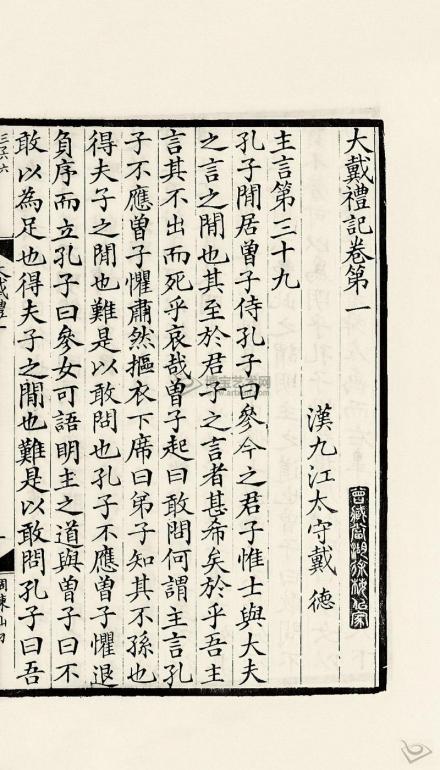 大戴禮記卷第一
漢九江太守戴 德
主言第三十九
孔子閒居曾子侍孔子曰參今之君子惟士與大夫
之言之閒也其至於君子之言者甚希矣於乎吾主
言其不出而死乎哀哉曾子起曰敢問何謂主言孔
子不應曾子懼肅然摳衣下席曰弟子知其不孫也
得夫子之閒也難是以敢問也孔子不應曾子懼退
負序而立孔子曰參女可語明主之道與曾子曰不
敢以為足也得夫子之閒也難是以敢問孔子曰吾